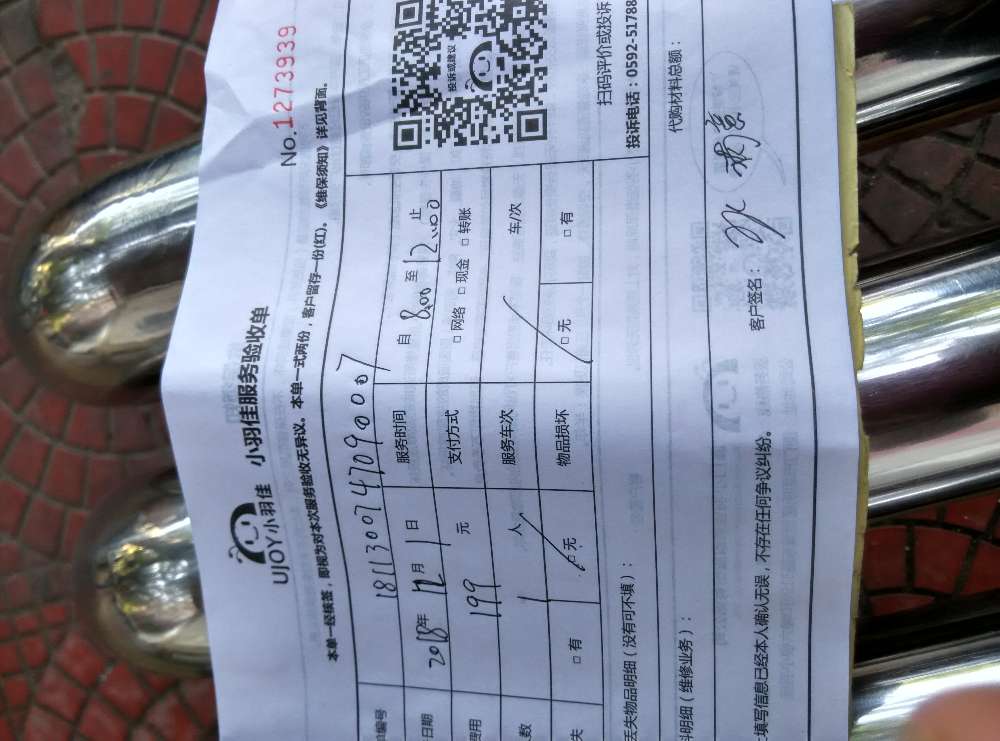 No.1273939
UJOY小羽佳 小羽佳服务验收单
本单一经核签，即视为对本次服务验收无异议。本单一式两份，客户留存一份(红)。《维保须知》详见背面。
编号 1811300747090007
日期 2018年 12月 1日 服务时间 自 8:00 至 12:00 止
费用 199 元 支付方式 □网络 □现金 □转账
数 1 人 服务车次 车/次
失 □有 □无 物品损坏 □无 □有
投诉或建议
扫码评价或投诉
投诉电话：0592-51788
丢失物品明细（没有可不填）：
料明细（维修业务）： 代购材料总额：
填写信息已经本人确认无误，不存在任何争议纠纷。 客户签名：